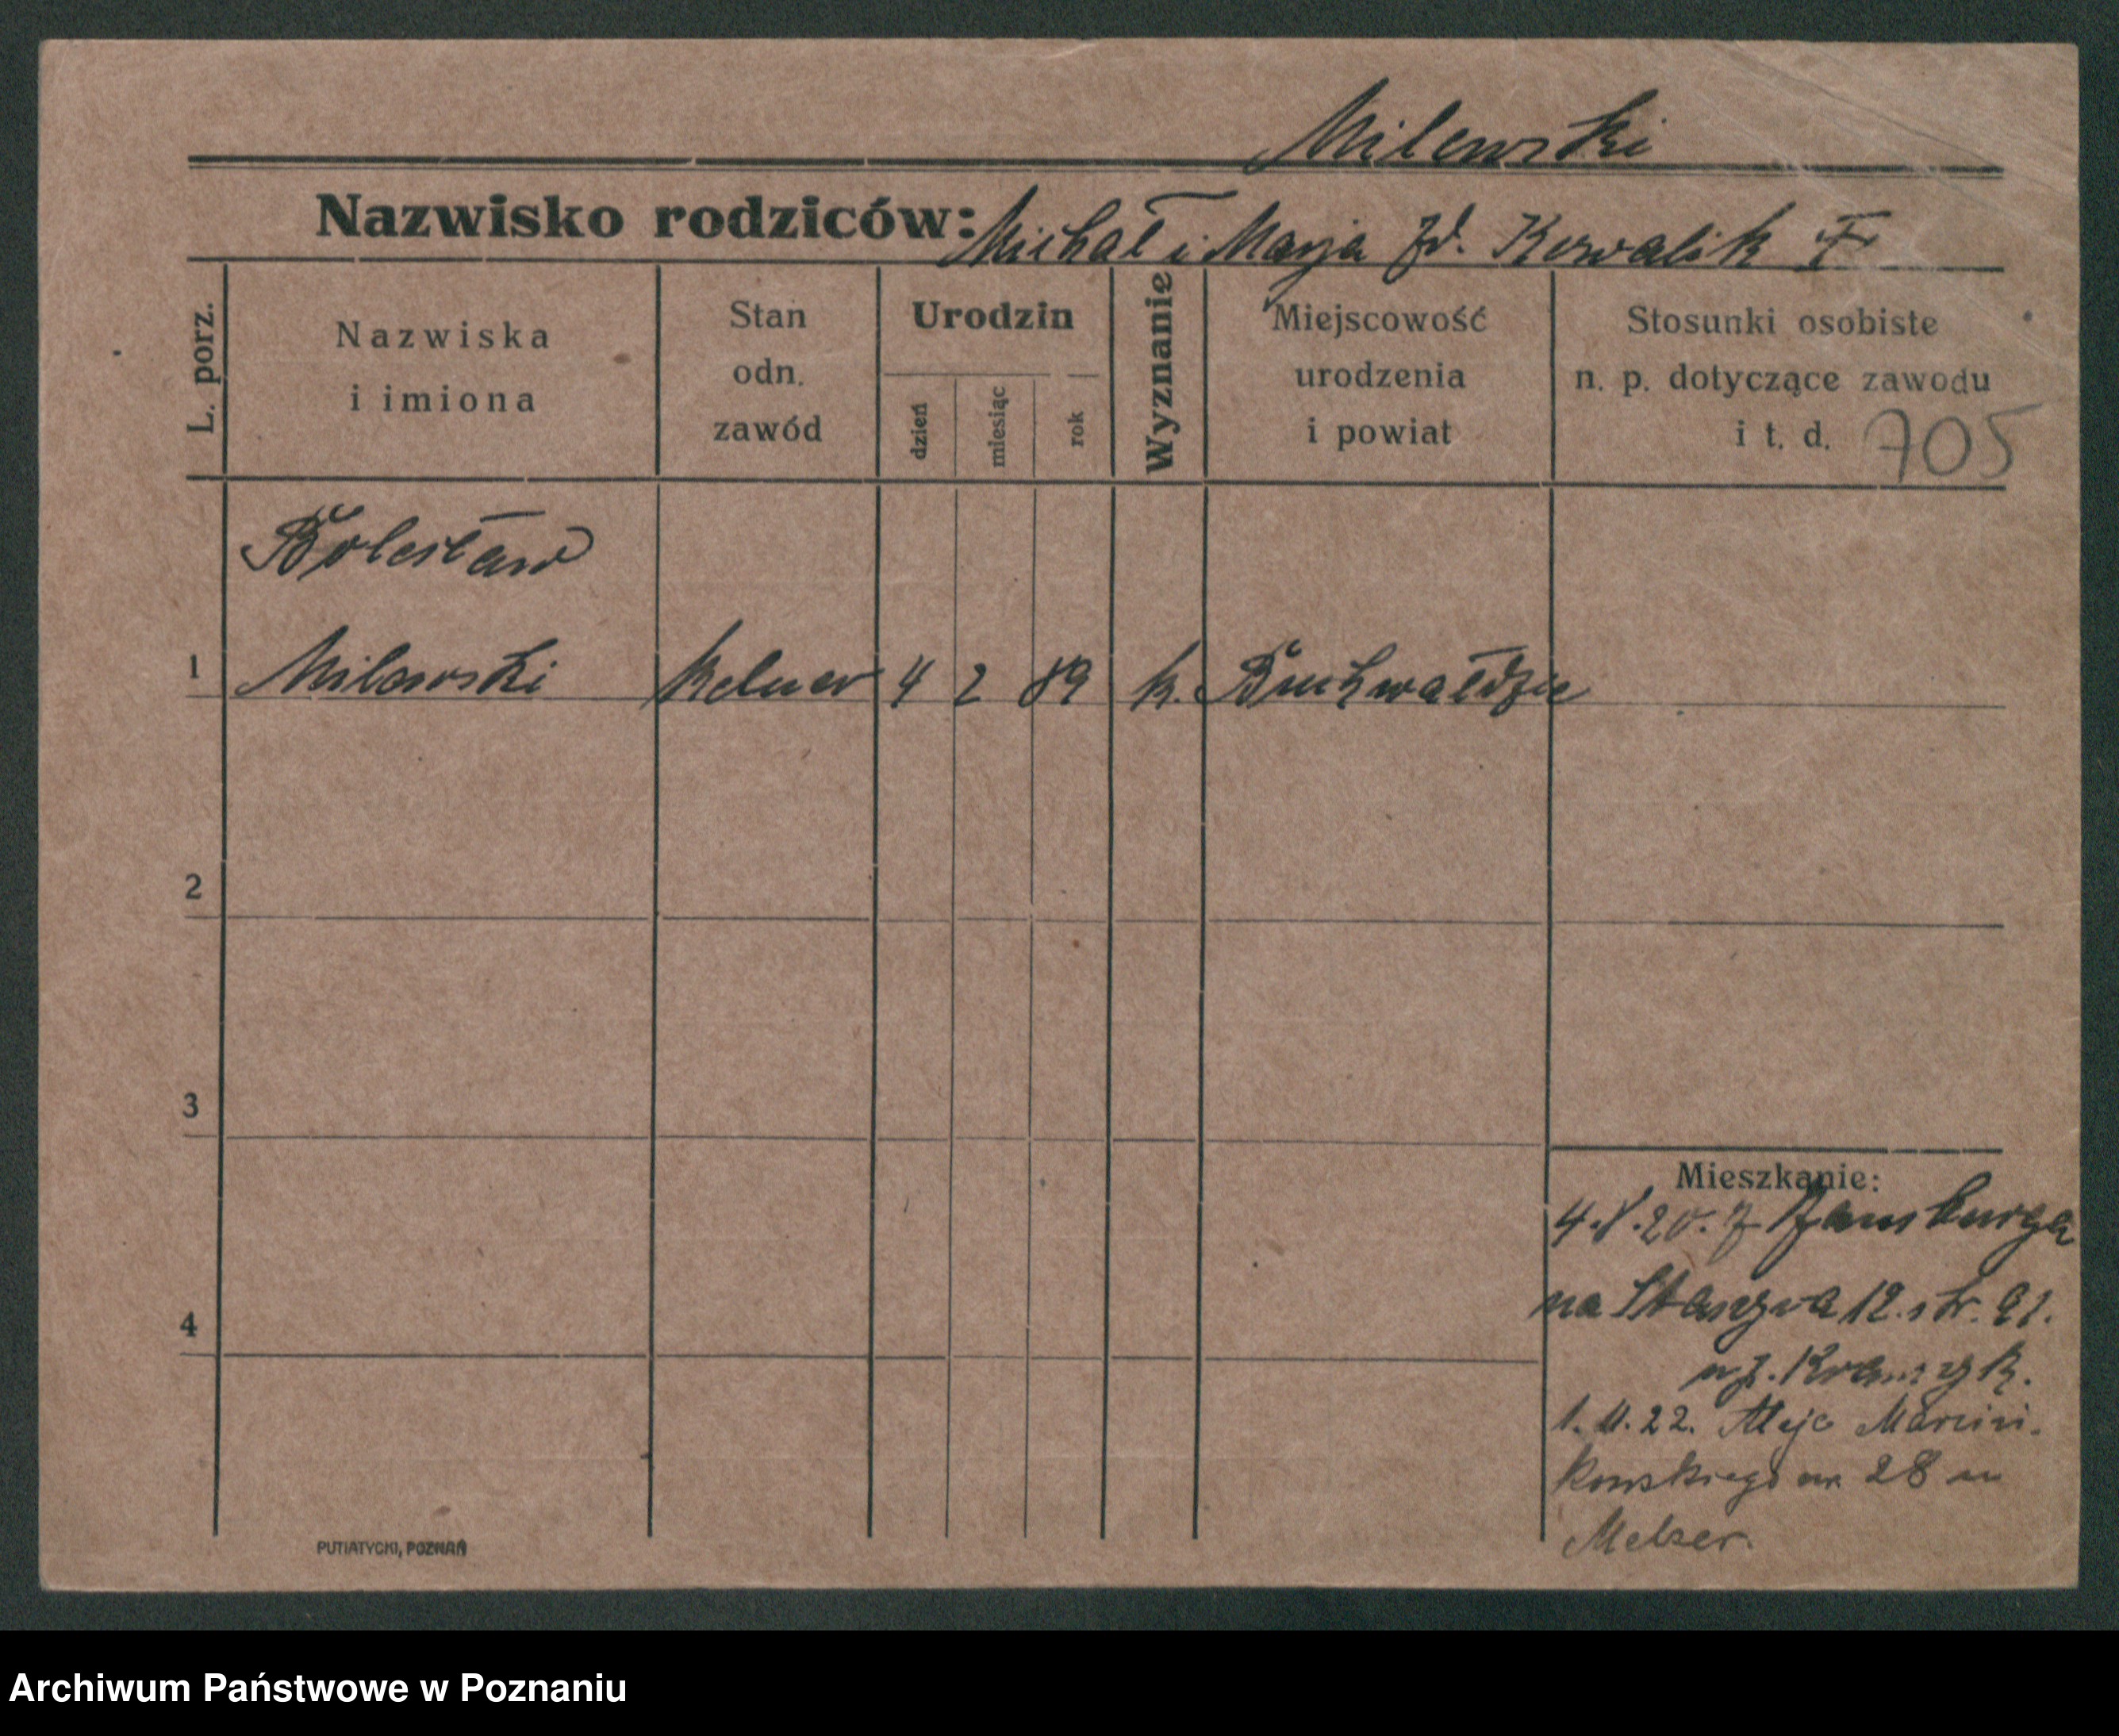 Milewski
Nazwisko rodziców: Michał i Marja Kowalik
L. porz.
Nazwiska
i imiona
Stan
odn.
zawód
Urodzin
dzień
miesiąc
rok
Wyznanie
Miejscowość
urodzenia
i powiat
Stosunki osobiste
n. p. dotyczące zawodu
i t. d.
705
Bolesław
1 Milewski kelner 4 2 89 k. Buchwałdzie
2
3
4
Mieszkanie:
na 12.
Krawczyk.
22. Aleje Marcin-
kowskiego nr 28
Melzer.
PUTIATYCKI, POZNAŃ
Archiwum Państwowe w Poznaniu